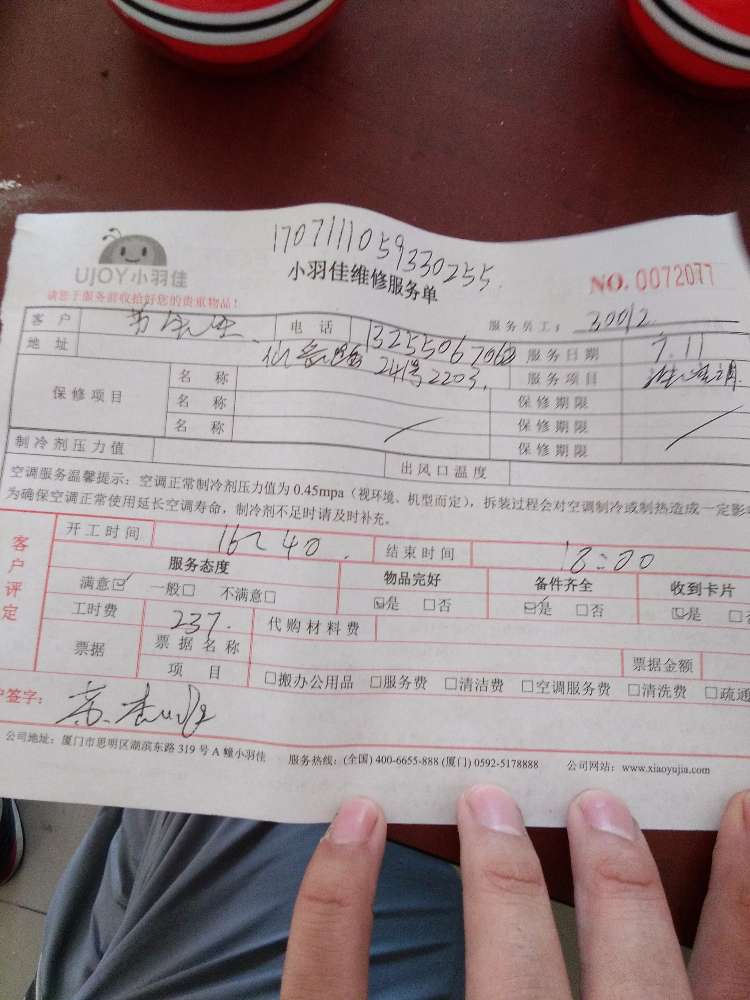 170711105933​0255
UJOY小羽佳
小羽佳维修服务单
NO. 0072077
请您于服务前收拾好您的贵重物品!
服务员工: 30012
客户 电话 13255067062 服务日期 7.11
地址 241号2203. 服务项目 洗空调
保修项目 名称 保修期限
名称 保修期限
名称 保修期限
制冷剂压力值 出风口温度
空调服务温馨提示:空调正常制冷剂压力值为 0.45mpa(视环境、机型而定),拆装过程会对空调制冷或制热造成一定影
为确保空调正常使用延长空调寿命,制冷剂不足时请及时补充。
客户评定
开工时间 16:40 结束时间 18:00
服务态度 物品完好 备件齐全 收到卡片
满意☑ 一般□ 不满意□ ☑是 □否 ☑是 □否 ☑是 □否
工时费 237. 代购材料费
票据 票据名称 票据金额
项目 □搬办公用品 □服务费 □清洁费 □空调服务费 □清洗费 □疏通
户签字:
公司地址:厦门市思明区湖滨东路 319 号 A 幢小羽佳 服务热线:(全国) 400-6655-888 (厦门) 0592-5178888 公司网站:www.xiaoyujia.com